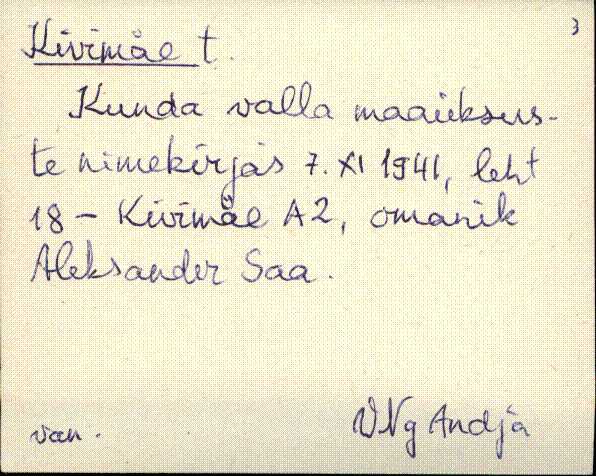 3
Kivimäe t.
Kunda valla maaüksus-
te nimekirjas 7. XI 1941, leht
18 - Kivimäe A2, omanik
Aleksander Saa.
van. VNg Andja